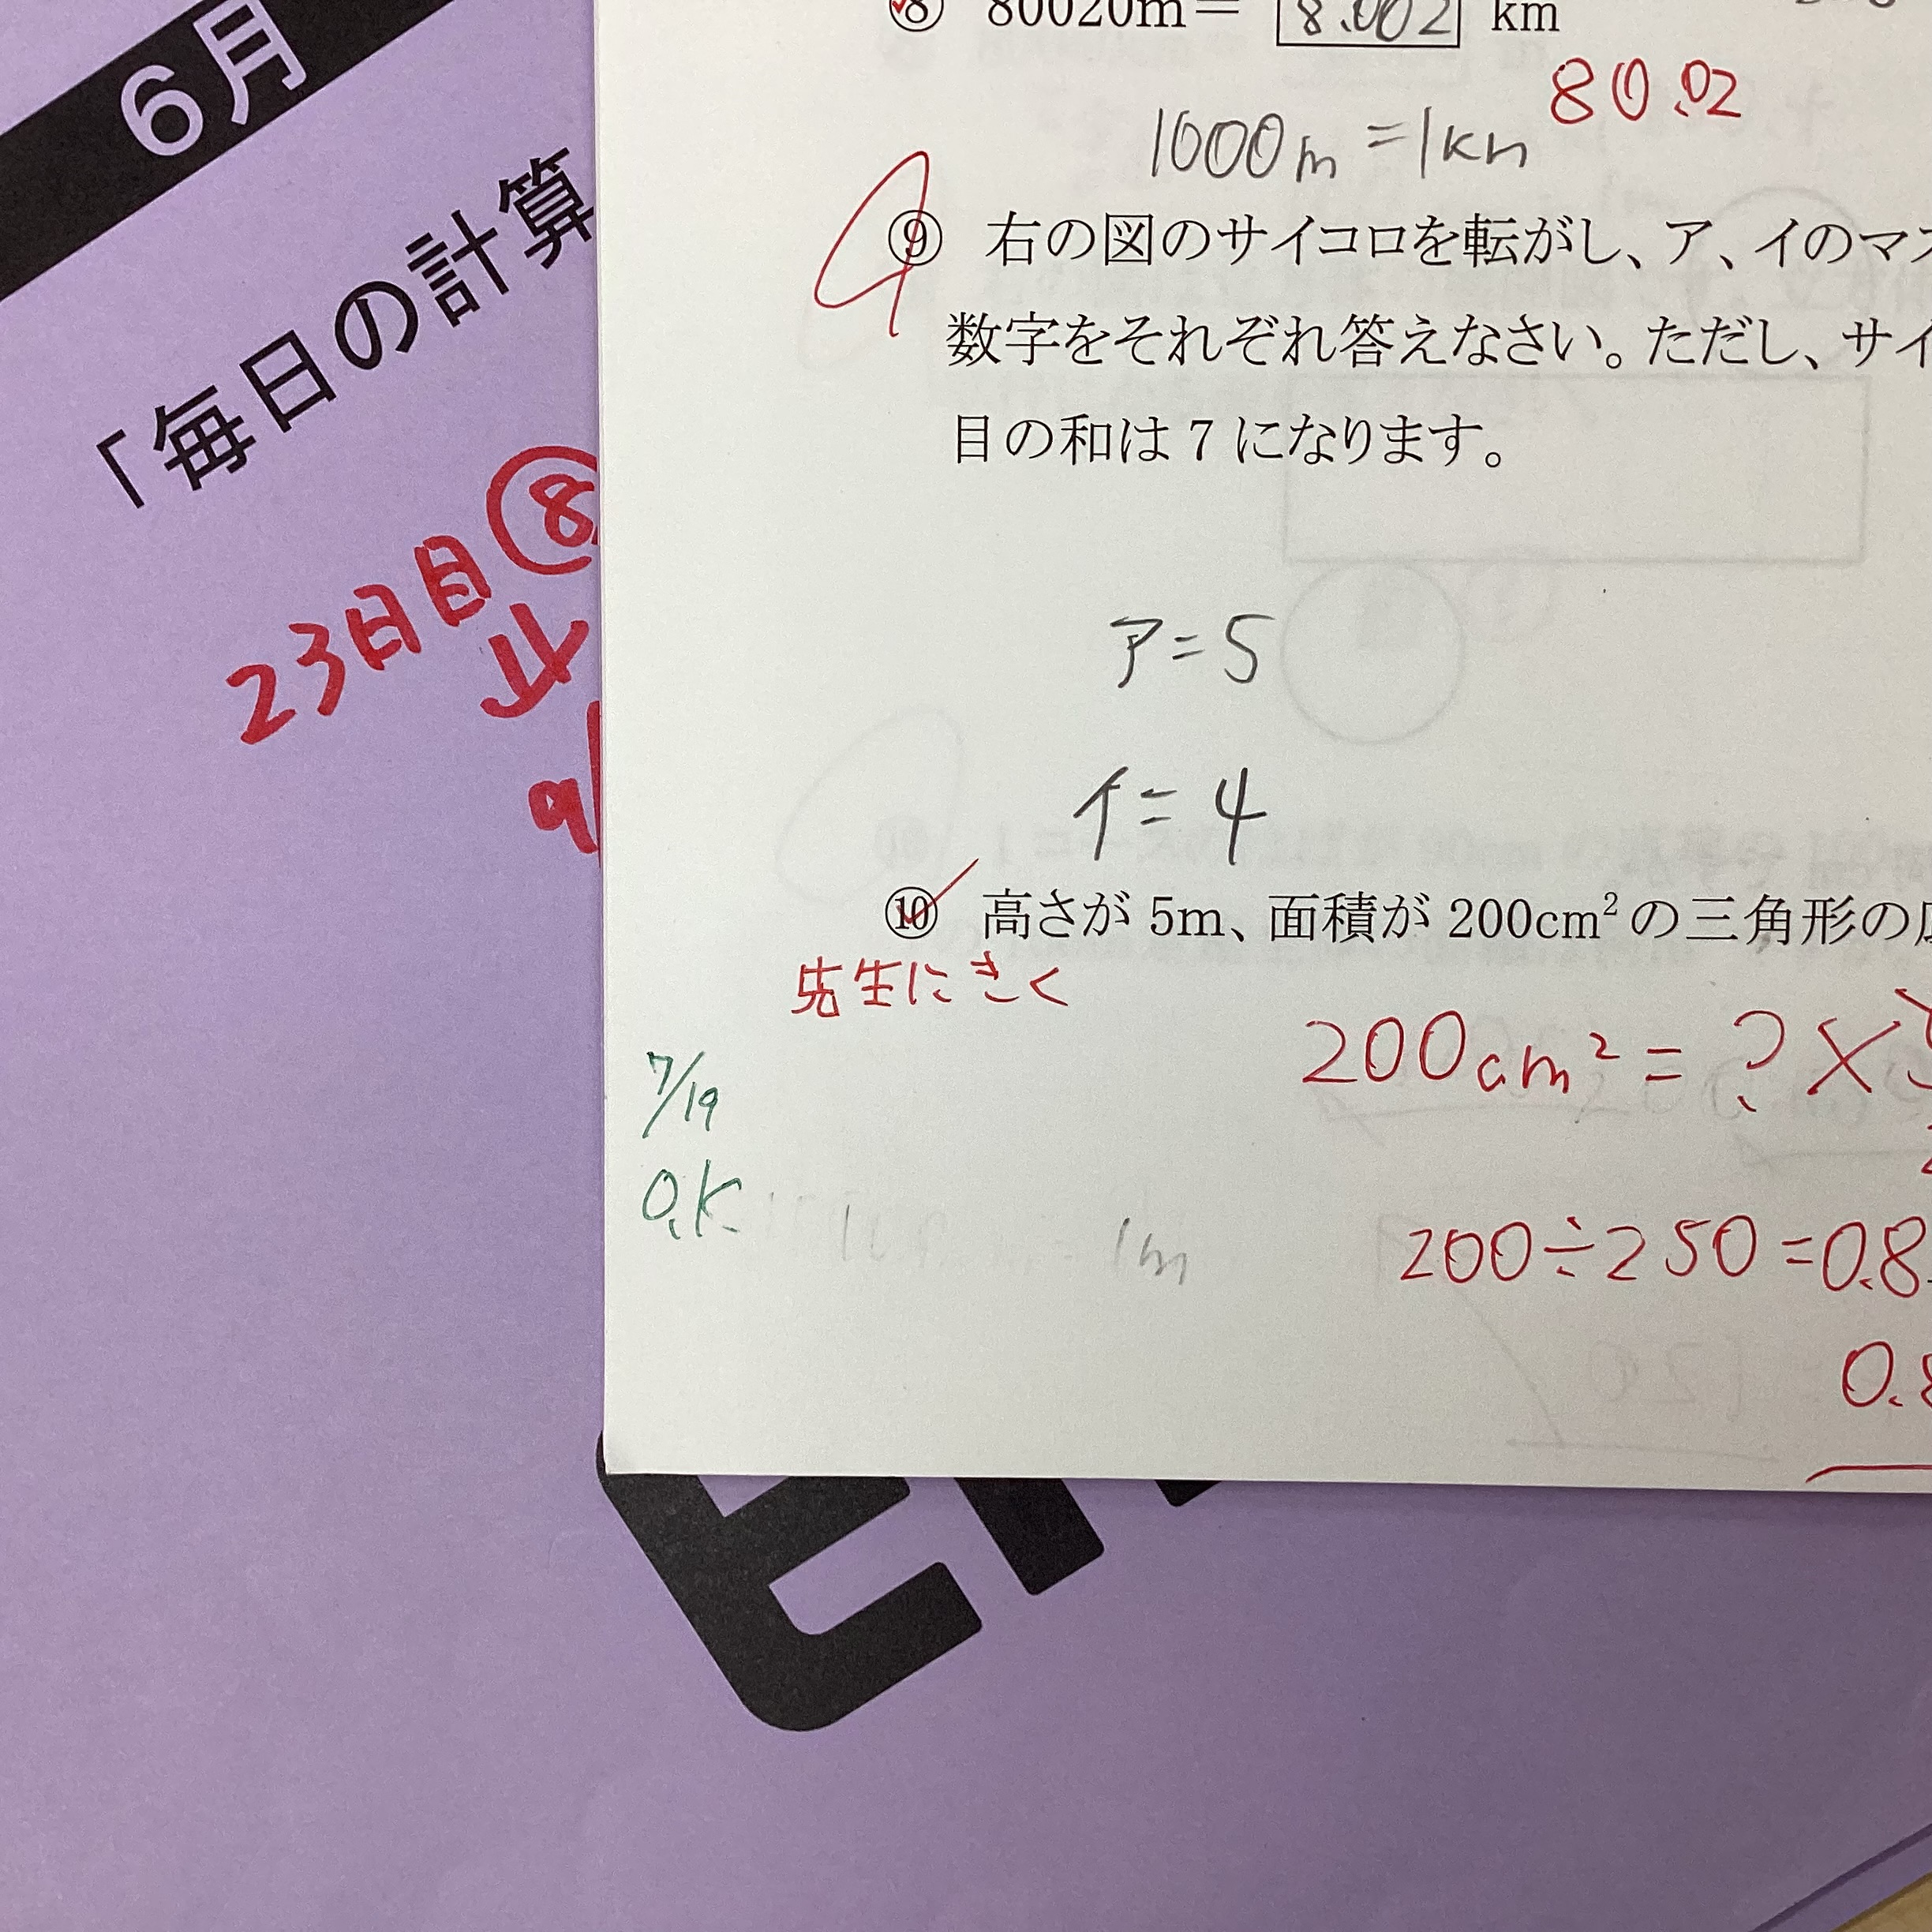 6月
「毎日の計算
23日目⑧
⑧ 80020m= 8.002 km
80.02
1000m=1km
⑨ 右の図のサイコロを転がし、ア、イのマ
数字をそれぞれ答えなさい。ただし、サイ
目の和は 7 になります。
ア=5
イ=4
⑩ 高さが 5m、面積が 200cm²の三角形の
先生にきく
200cm²=?×
7/19
O.K
1m
200÷250=0.8
0.8